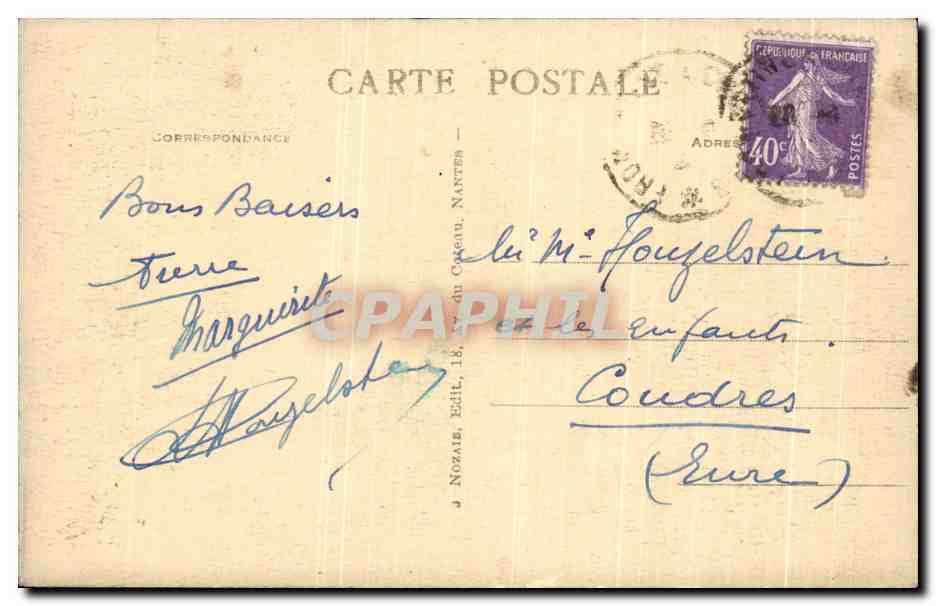 CARTE POSTALE
CORRESPONDANCE
ADRES
REPUBLIQUE FRANCAISE
40c
POSTES
Bons Baisers
Pierre
Marguerite
Houzelstein
J NOZAIS, Edit., 18, Av. du Coteau, NANTES
Mr Me Houzelstein
et les enfants.
Coudres
(Eure)
CPAPHIL